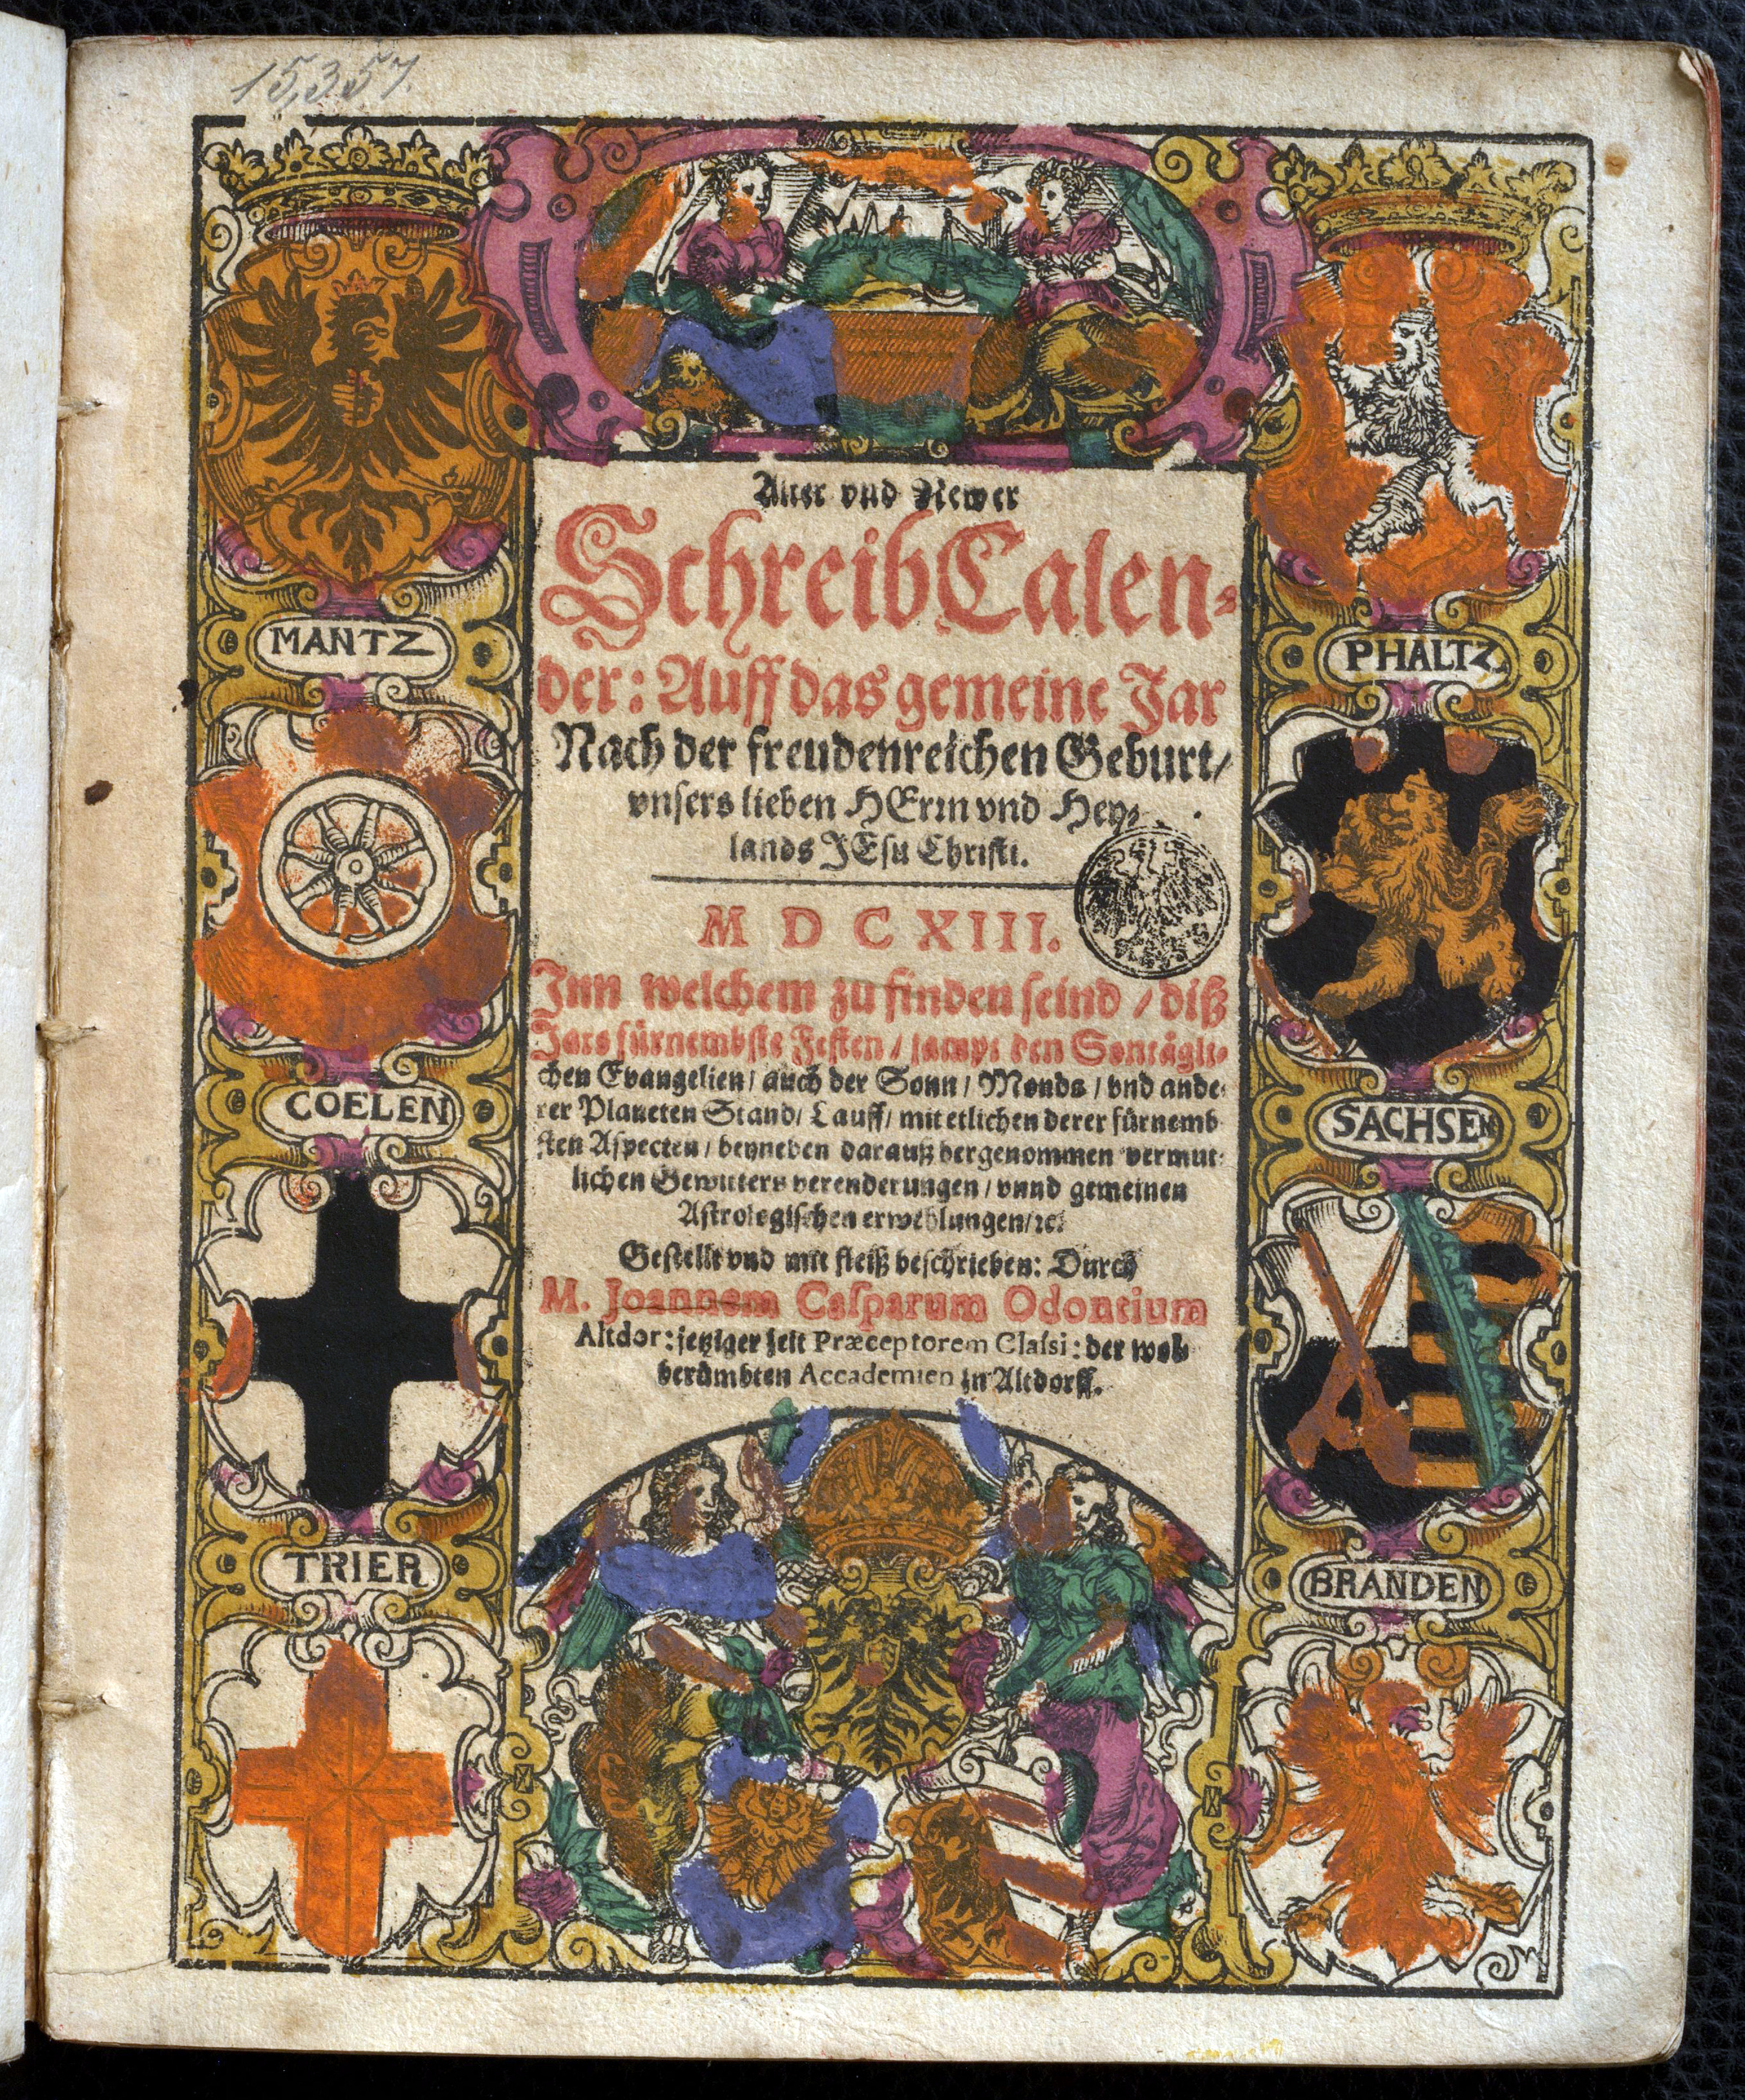 15,357.
Alter vnd Newer
SchreibCalen⸗
der: Auff das gemeine Jar
Nach der freudenreichen Geburt/
vnsers lieben HErrn vnd Hey⸗
lands JEsu Christi.
M D C XIII.
Inn welchem zu finden seind / diß
Jars fürnembste Festen / sampt den Sontägli⸗
chen Evangelien/ auch der Sonn/ Monds / vnd ande⸗
rer Planeten Stand/ Lauff/ mit etlichen derer fürnemb
sten Aspecten / beyneben darauß hergenommen vermut⸗
lichen Gewitters verenderungen / vnnd gemeinen
Astrologischen erwehlungen/ ꝛc.
Gestellt vnd mit fleiß beschrieben: Durch
M. Joannem Casparum Odontium
Altdor: jetziger zeit Præceptorem Classi: der wol⸗
berümbten Accademien zu Altdorff.
MANTZ
COELEN
TRIER
PHALTZ
SACHSEN
BRANDEN